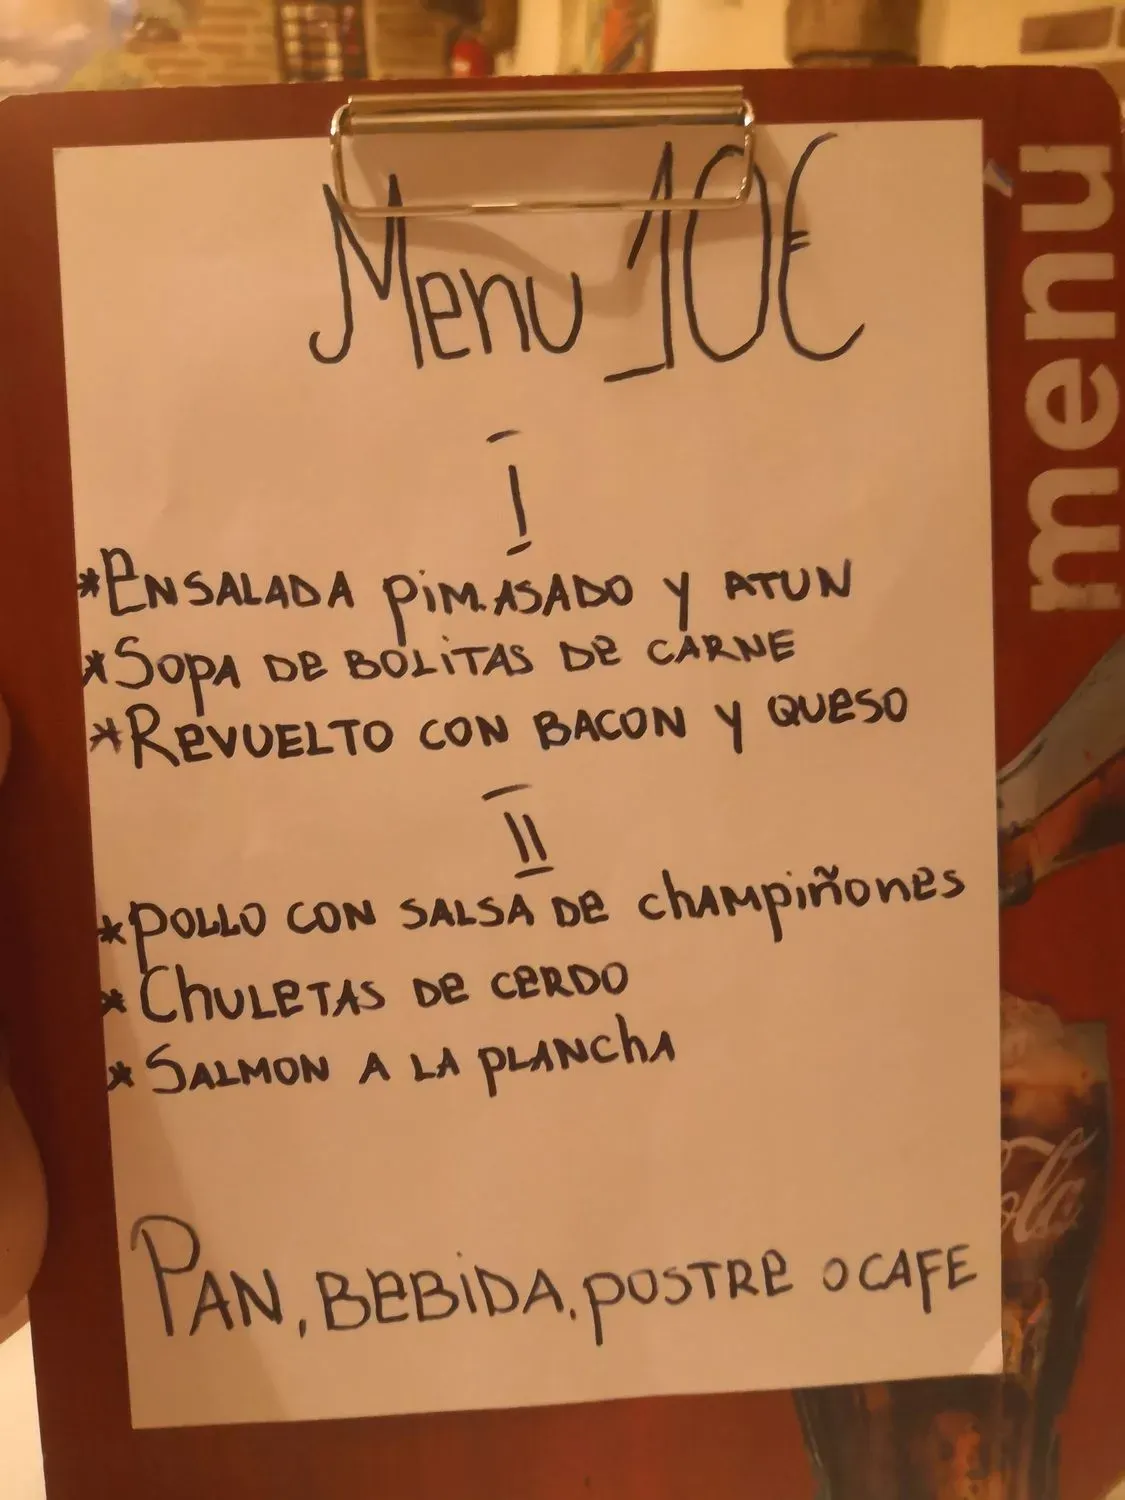 Menu 10€
I
*ENSALADA PIM.ASADO Y ATUN
*SOPA DE BOLITAS DE CARNE
*REVUELTO CON BACON Y QUESO
II
*POLLO CON SALSA DE CHAMPIÑONES
*CHULETAS DE CERDO
*SALMON A LA PLANCHA
PAN, BEBIDA, POSTRE O CAFE
menú
Cola